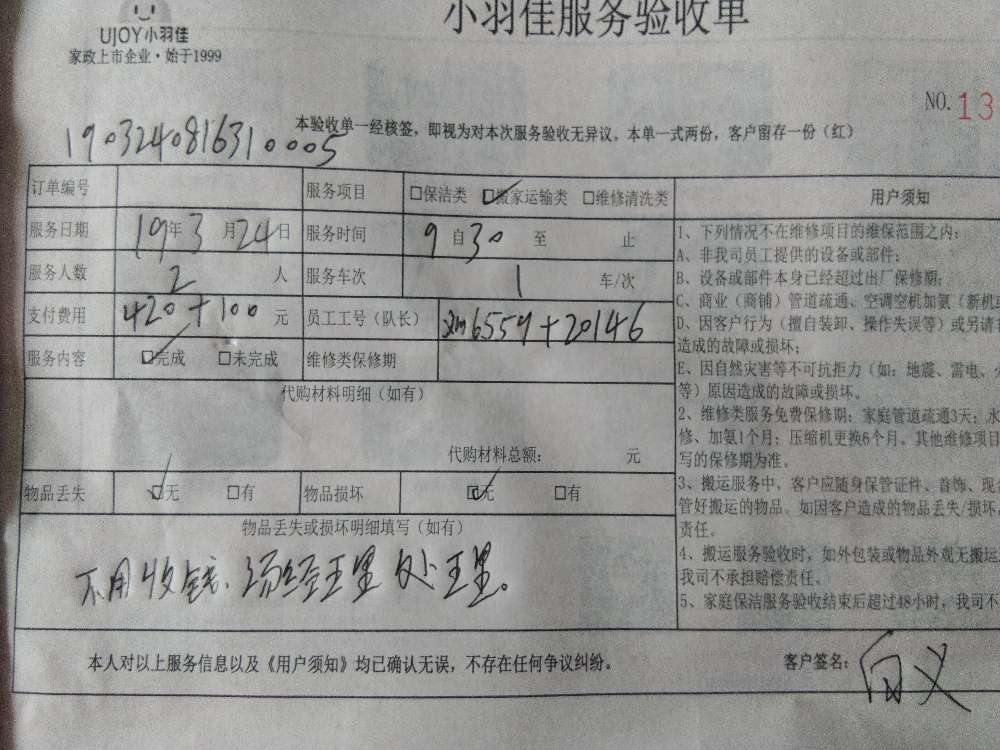 UJOY小羽佳
家政上市企业·始于1999
小羽佳服务验收单
NO.13
本验收单一经核签，即视为对本次服务验收无异议。本单一式两份，客户留存一份（红）
1903240816310005
订单编号 服务项目 □保洁类 ☑搬家运输类 □维修清洗类
服务日期 19年3月24日 服务时间 9自30至 止
服务人数 2人 服务车次 1车/次
支付费用 420+100元 员工工号（队长） 6559+20146
服务内容 ☑完成 □未完成 维修类保修期
代购材料明细（如有）
代购材料总额： 元
物品丢失 ☑无 □有 物品损坏 ☑无 □有
物品丢失或损坏明细填写（如有）
不用收钱.汤经理处理。
用户须知
1、下列情况不在维修项目的维保范围之内：
A、非我司员工提供的设备或部件；
B、设备或部件本身已经超过出厂保修期；
C、商业（商铺）管道疏通、空调空机加氨（新机
D、因客户行为（擅自装卸、操作失误等）或另请
造成的故障或损坏；
E、因自然灾害等不可抗拒力（如：地震、雷电、
等）原因造成的故障或损坏。
2、维修类服务免费保修期：家庭管道疏通3天；水
修、加氨1个月；压缩机更换6个月。其他维修项目
写的保修期为准。
3、搬运服务中、客户应随身保管证件、首饰、现
管好搬运的物品。如因客户造成的物品丢失/损坏，
责任。
4、搬运服务验收时，如外包装或物品外观无搬运
我司不承担赔偿责任。
5、家庭保洁服务验收结束后超过48小时，我司不
本人对以上服务信息以及《用户须知》均已确认无误，不存在任何争议纠纷。 客户签名：